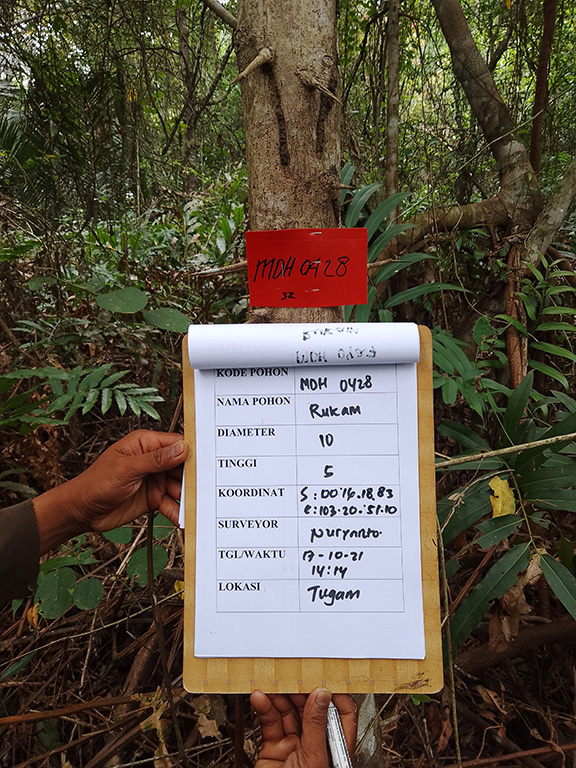 MDH 0428
32
KODE POHON MDH 0428
NAMA POHON Rukam
DIAMETER 10
TINGGI 5
KOORDINAT S : 00'16.18,83
E : 103.20.'51.10
SURVEYOR Nuryanto
TGL/WAKTU 17-10-21
14:14
LOKASI Tugam